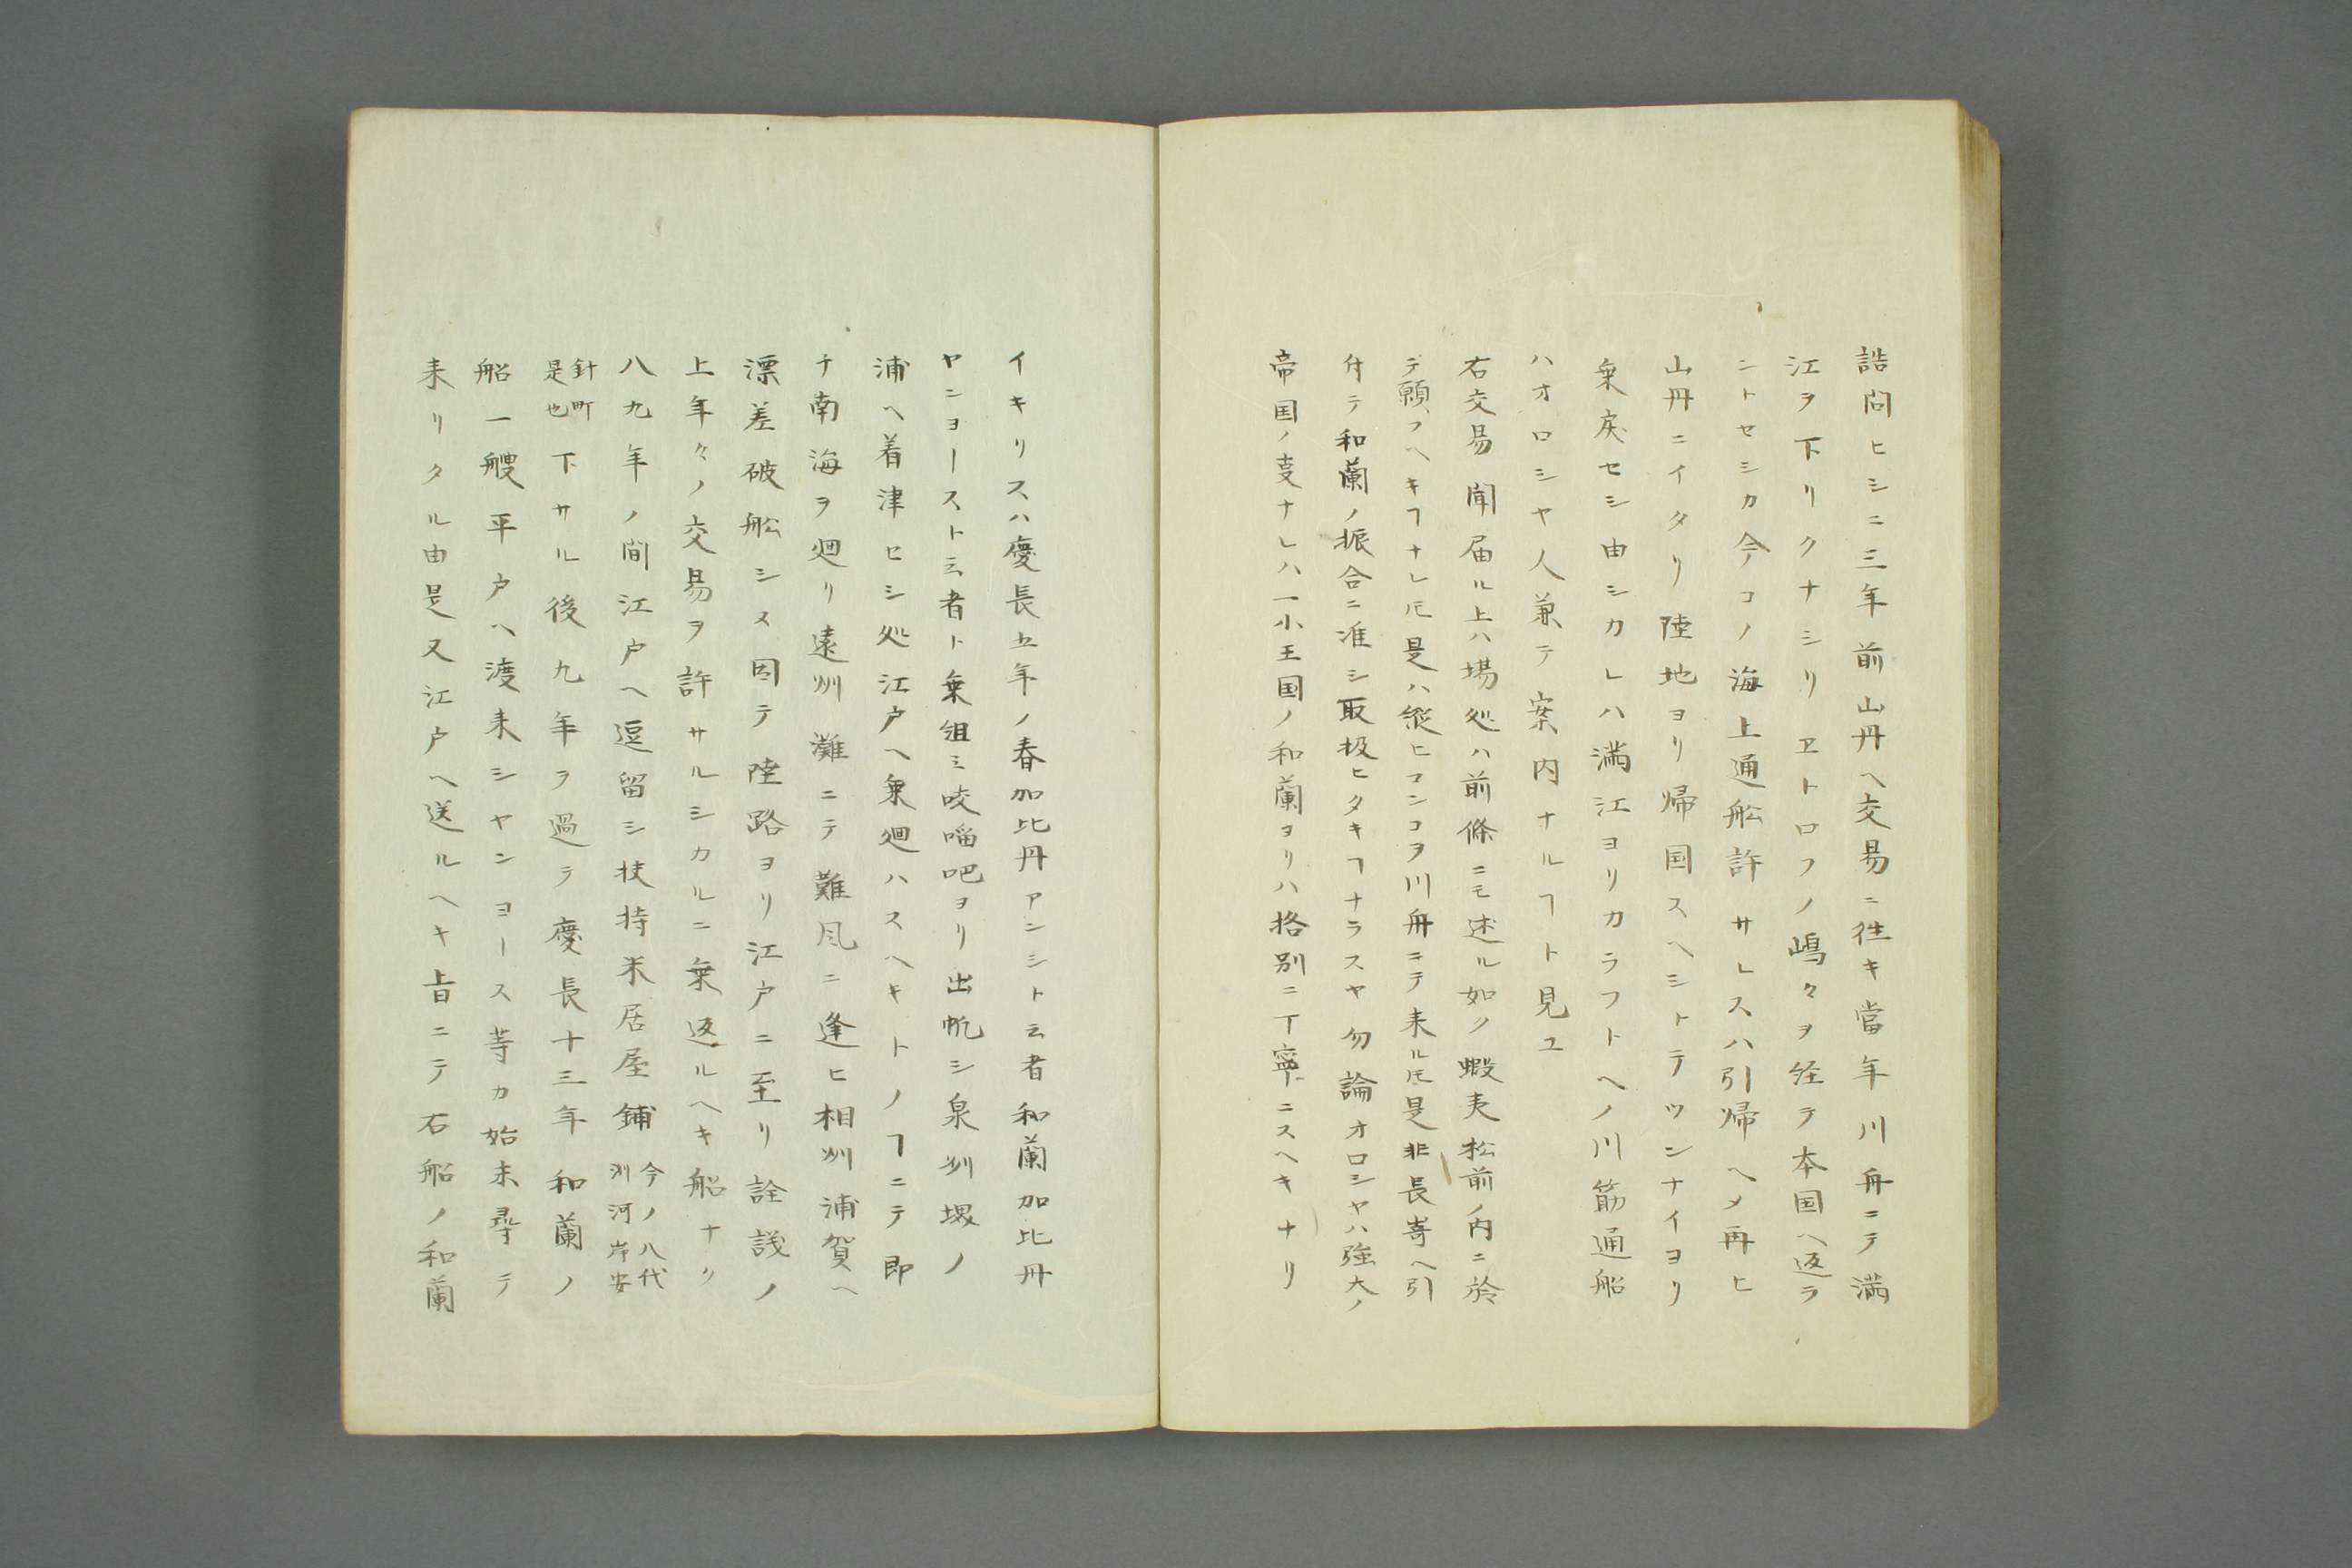 詰問ヒシニ三年前山丹ヘ交易ニ往キ當年川舟ニテ満
江ヲ下リクナシリヱトロフノ嶋々ヲ経テ本国ヘ返ラ
ントセシカ今コノ海上通舩許サレスハ引帰ヘメ再ヒ
山丹ニイタリ陸地ヨリ帰国スヘシトテツンナイヨリ
乗戻セシ由シカレハ満江ヨリカラフトヘノ川筋通船
ハオロシヤ人兼テ案内ナルヿト見ユ
右交易聞届ル上ハ場処ハ前條ニモ述ル如ク蝦夷松前ノ内ニ於
テ願フヘキヿナレ𪜈是ハ縦ヒコンコヲ川舟ニテ来ル𪜈是非長嵜ヘ引
付テ和蘭ノ振合ニ准シ取扱ヒタキヿナラスヤ勿論オロシヤハ強大ノ
帝国ノ㕝ナレハ一小王国ノ和蘭ヨリハ格別ニ丁寧ニスヘキナリ
イキリスハ慶長五年ノ春加比丹アンシト云者和蘭加比丹
ヤンヨースト云者ト乗組ミ咬𠺕吧ヨリ出帆シ泉州堺ノ
浦ヘ着津セシ処江戸ヘ乗廻ハスヘキトノヿニテ即
チ南海ヲ廻リ遠州灘ニテ難風ニ逢ヒ相州浦賀ヘ
漂差破舩シス因テ陸路ヨリ江戸ニ至リ詮議ノ
上年々ノ交易ヲ許サルシカルニ乗返ルヘキ船ナク
八九年ノ間江戸ヘ逗留シ扶持米居屋鋪今ノ八代洲河岸安
針町是也下サル後九年ヲ過テ慶長十三年和蘭ノ
船一艘平戸ヘ渡来シヤンヨース等カ始末尋テ
来リタル由是又江戸ヘ送ルヘキ旨ニテ右船ノ和蘭